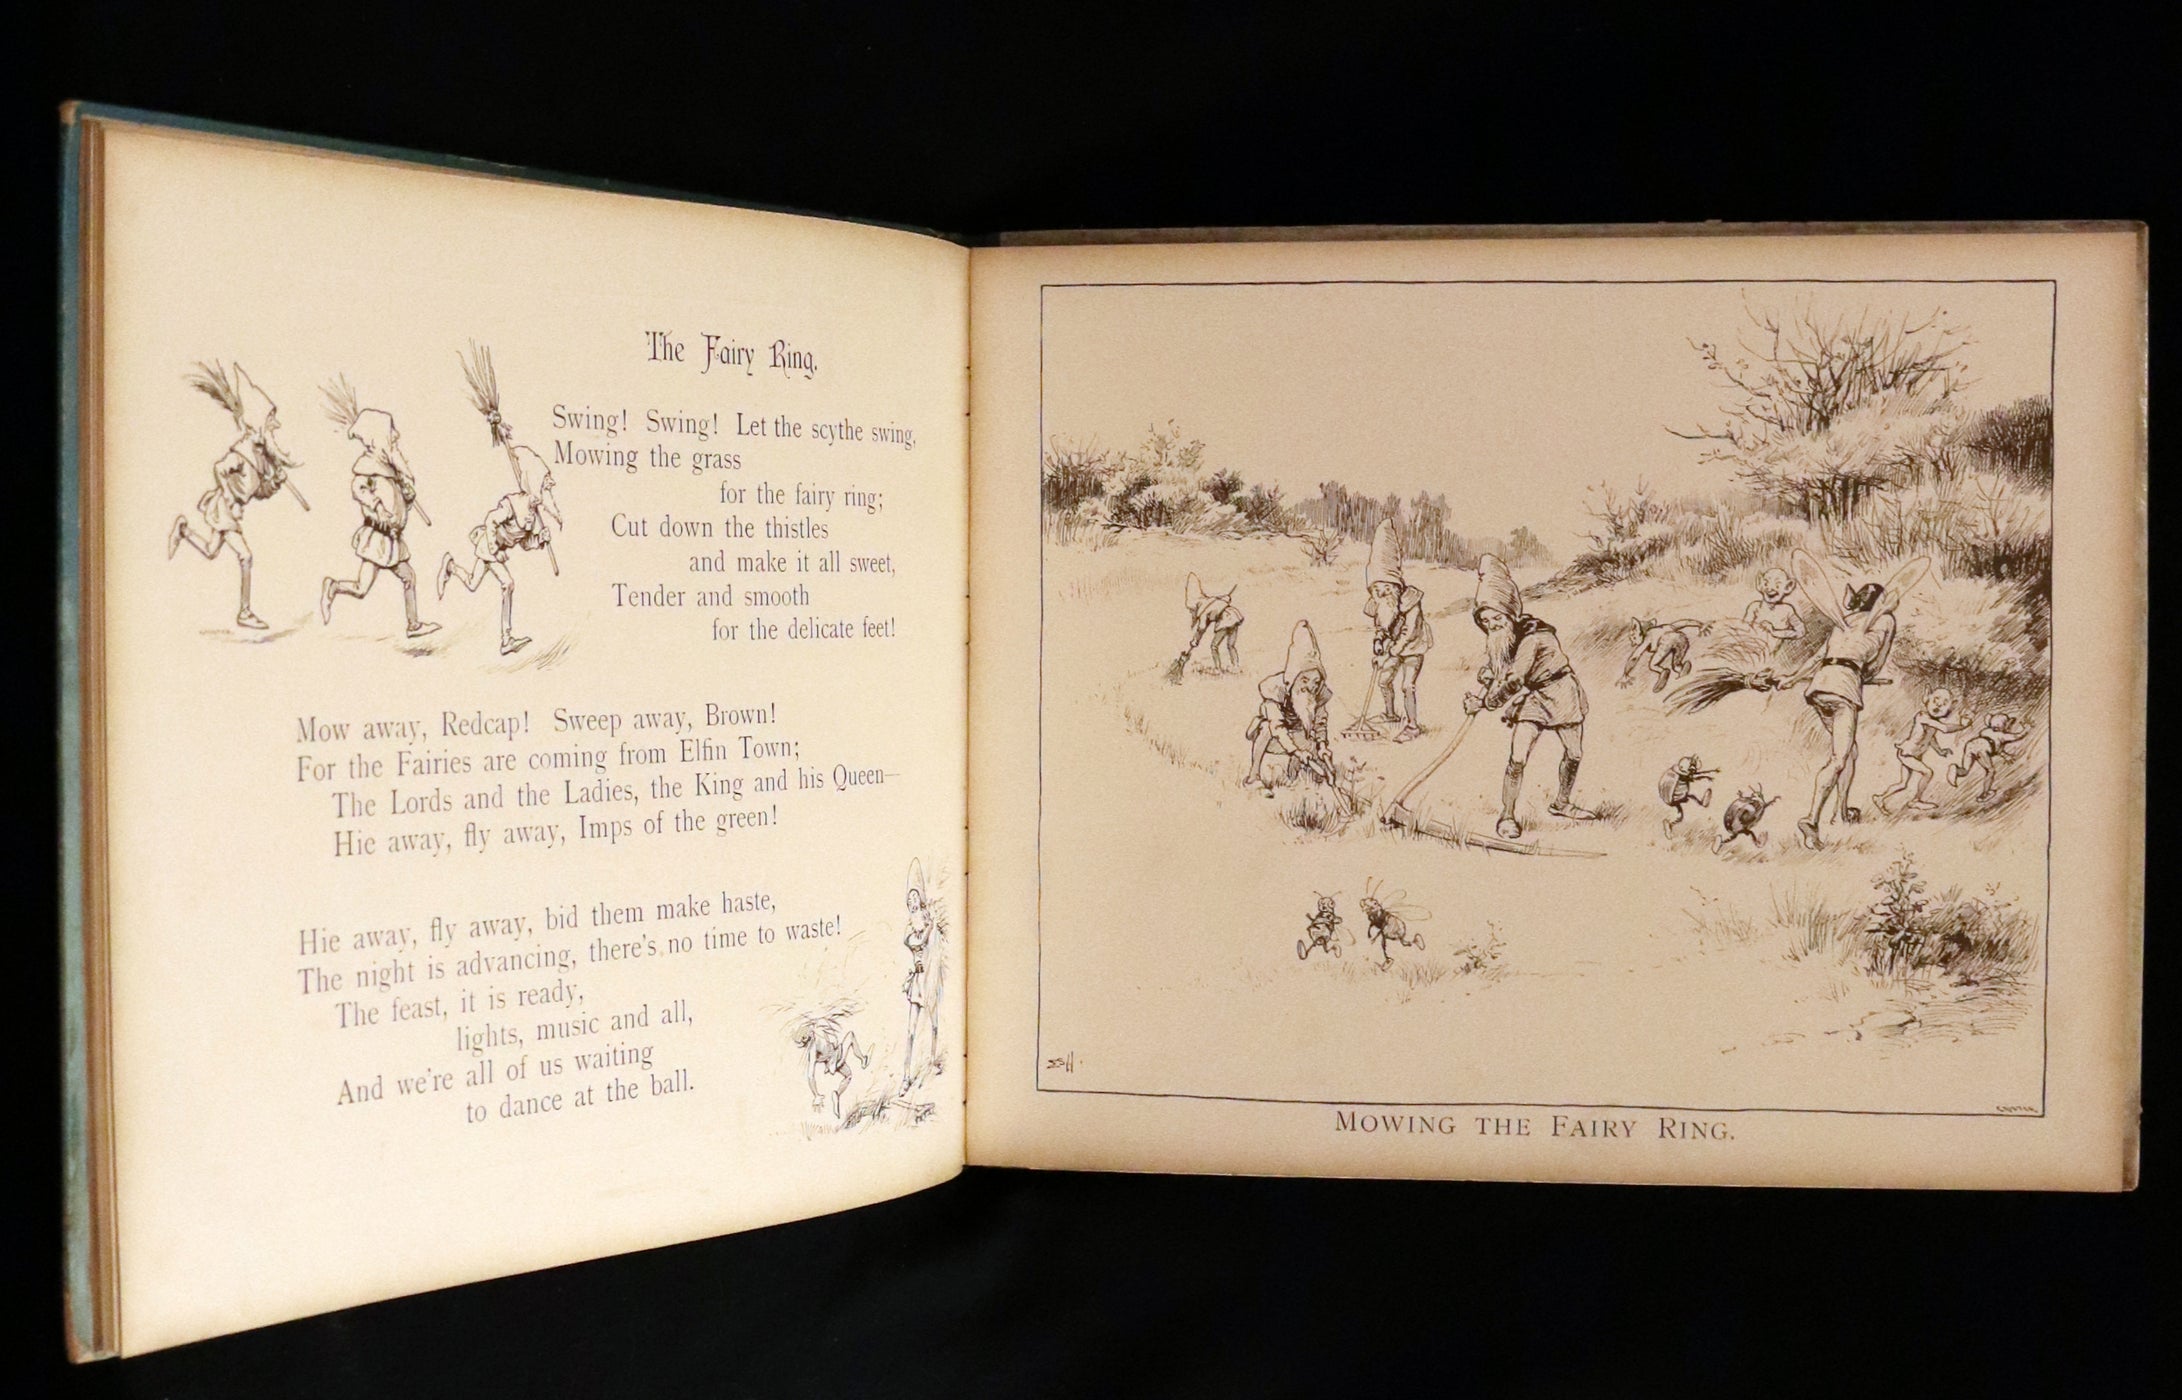 The Fairy Ring.
Swing! Swing! Let the scythe swing,
Mowing the grass
for the fairy ring;
Cut down the thistles
and make it all sweet,
Tender and smooth
for the delicate feet!
Mow away, Redcap! Sweep away, Brown!
For the Fairies are coming from Elfin Town;
The Lords and the Ladies, the King and his Queen—
Hie away, fly away, Imps of the green!
Hie away, fly away, bid them make haste,
The night is advancing, there's no time to waste!
The feast, it is ready,
lights, music and all,
And we're all of us waiting
to dance at the ball.
ESH.
MOWING THE FAIRY RING.